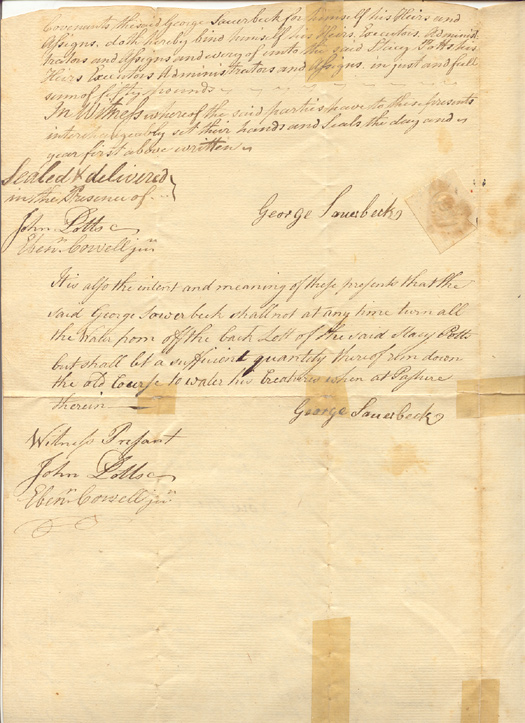 Covenants the said George Sauerbeck for himself his Heirs and
Assigns, doth hereby bind himself his Heirs, Executors, Adminis
trators and Assigns and every of them unto the said Stacy Potts his
Heirs Executors Administrators and Assigns in just and full
sum of fifty pounds
In Witness whereof the said parties have to these presents
interchangeably set their hands and Seals the day and
year first above written
Sealed & delivered
in the Presence of
George Sauerbeck
John Potts
Eben.r Cowell jun.r
It is also the intent and meaning of these presents that the
said George Sowerbeck shall not at any time turn all
the water from off the back Lott of the said Stacy Potts
but shall let a sufficient quantity thereof run down
the old Course to water his Creatures when at Pasture
therein
George Sauerbeck
Witness Presant
John Potts
Eben.r Cowell jun.r